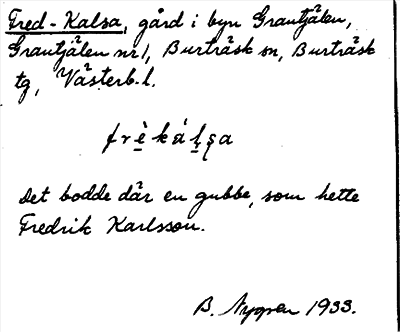 Fred-Kalsa, gård i byn Grantjälen,
Grantjälen nr 1, Burträsk sn, Burträsk
tg, Västerb. l.
Det bodde där en gubbe, som hette
Fredrik Karlsson.
B. Nygren 1933.